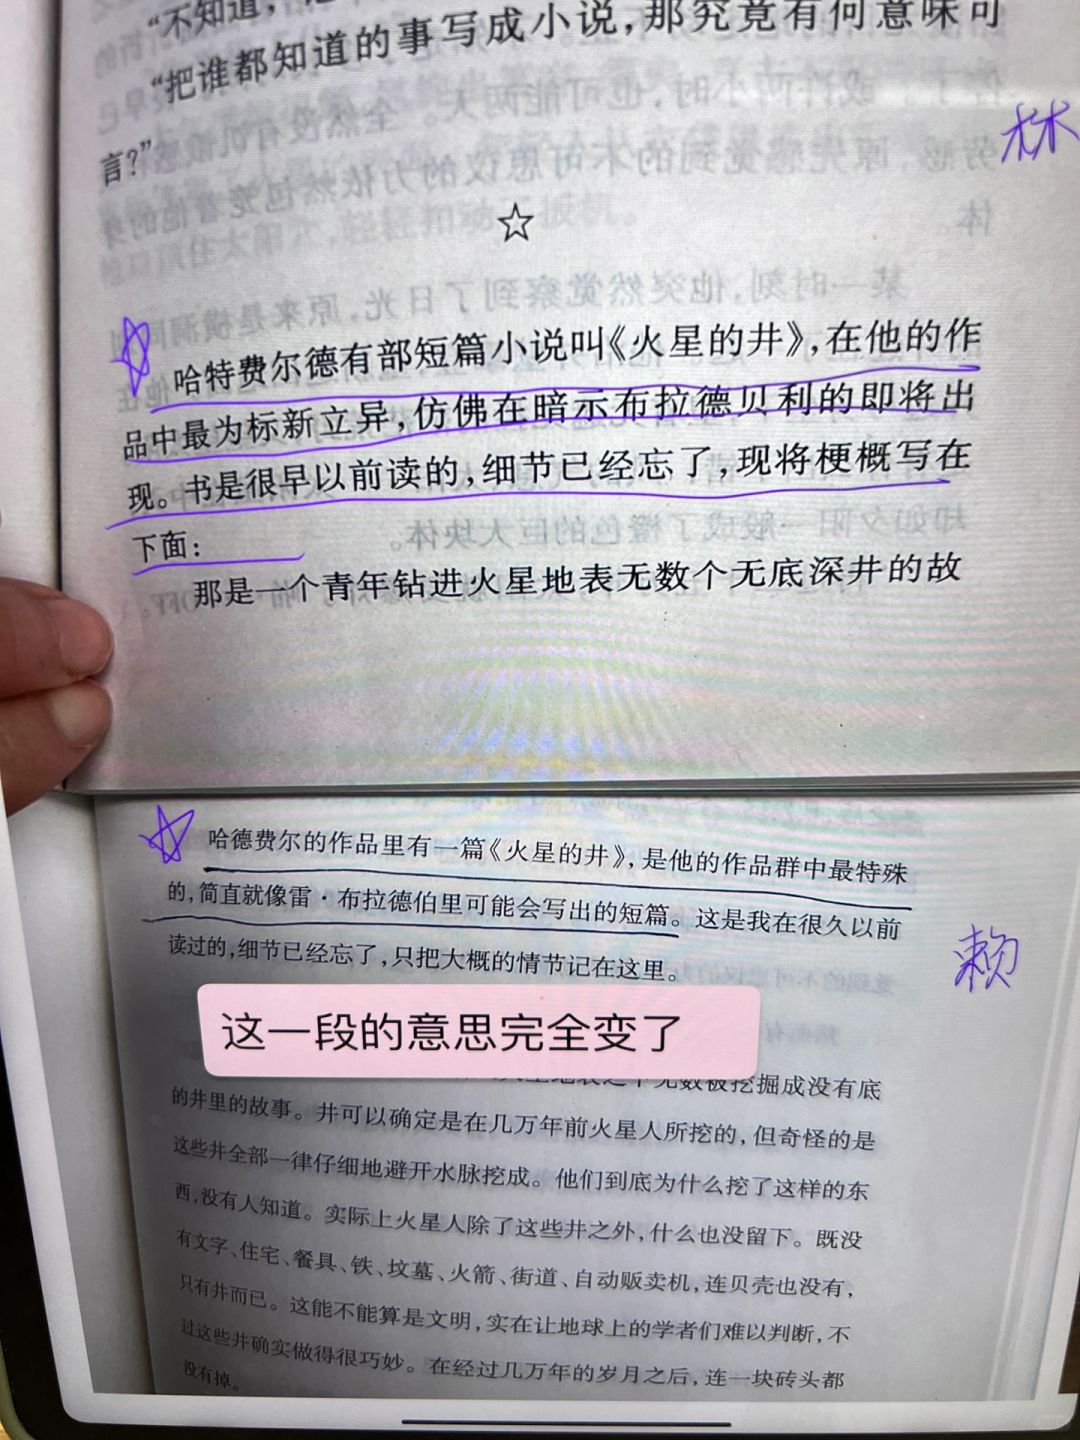 “不知道，
“把谁都知道的事写成小说，那究竟有何意味可
言？”
林
☆
哈特费尔德有部短篇小说叫《火星的井》，在他的作
品中最为标新立异，仿佛在暗示布拉德贝利的即将出
现。书是很早以前读的，细节已经忘了，现将梗概写在
下面：
那是一个青年钻进火星地表无数个无底深井的故
哈德费尔的作品里有一篇《火星的井》，是他的作品群中最特殊
的，简直就像雷·布拉德伯里可能会写出的短篇。这是我在很久以前
读过的，细节已经忘了，只把大概的情节记在这里。
赖
这一段的意思完全变了
无数被挖掘成没有底
的井里的故事。井可以确定是在几万年前火星人所挖的，但奇怪的是
这些井全部一律仔细地避开水脉挖成。他们到底为什么挖了这样的东
西，没有人知道。实际上火星人除了这些井之外，什么也没留下。既没
有文字、住宅、餐具、铁、坟墓、火箭、街道、自动贩卖机，连贝壳也没有，
只有井而已。这能不能算是文明，实在让地球上的学者们难以判断，不
过这些井确实做得很巧妙。在经过几万年的岁月之后，连一块砖头都
没有掉。